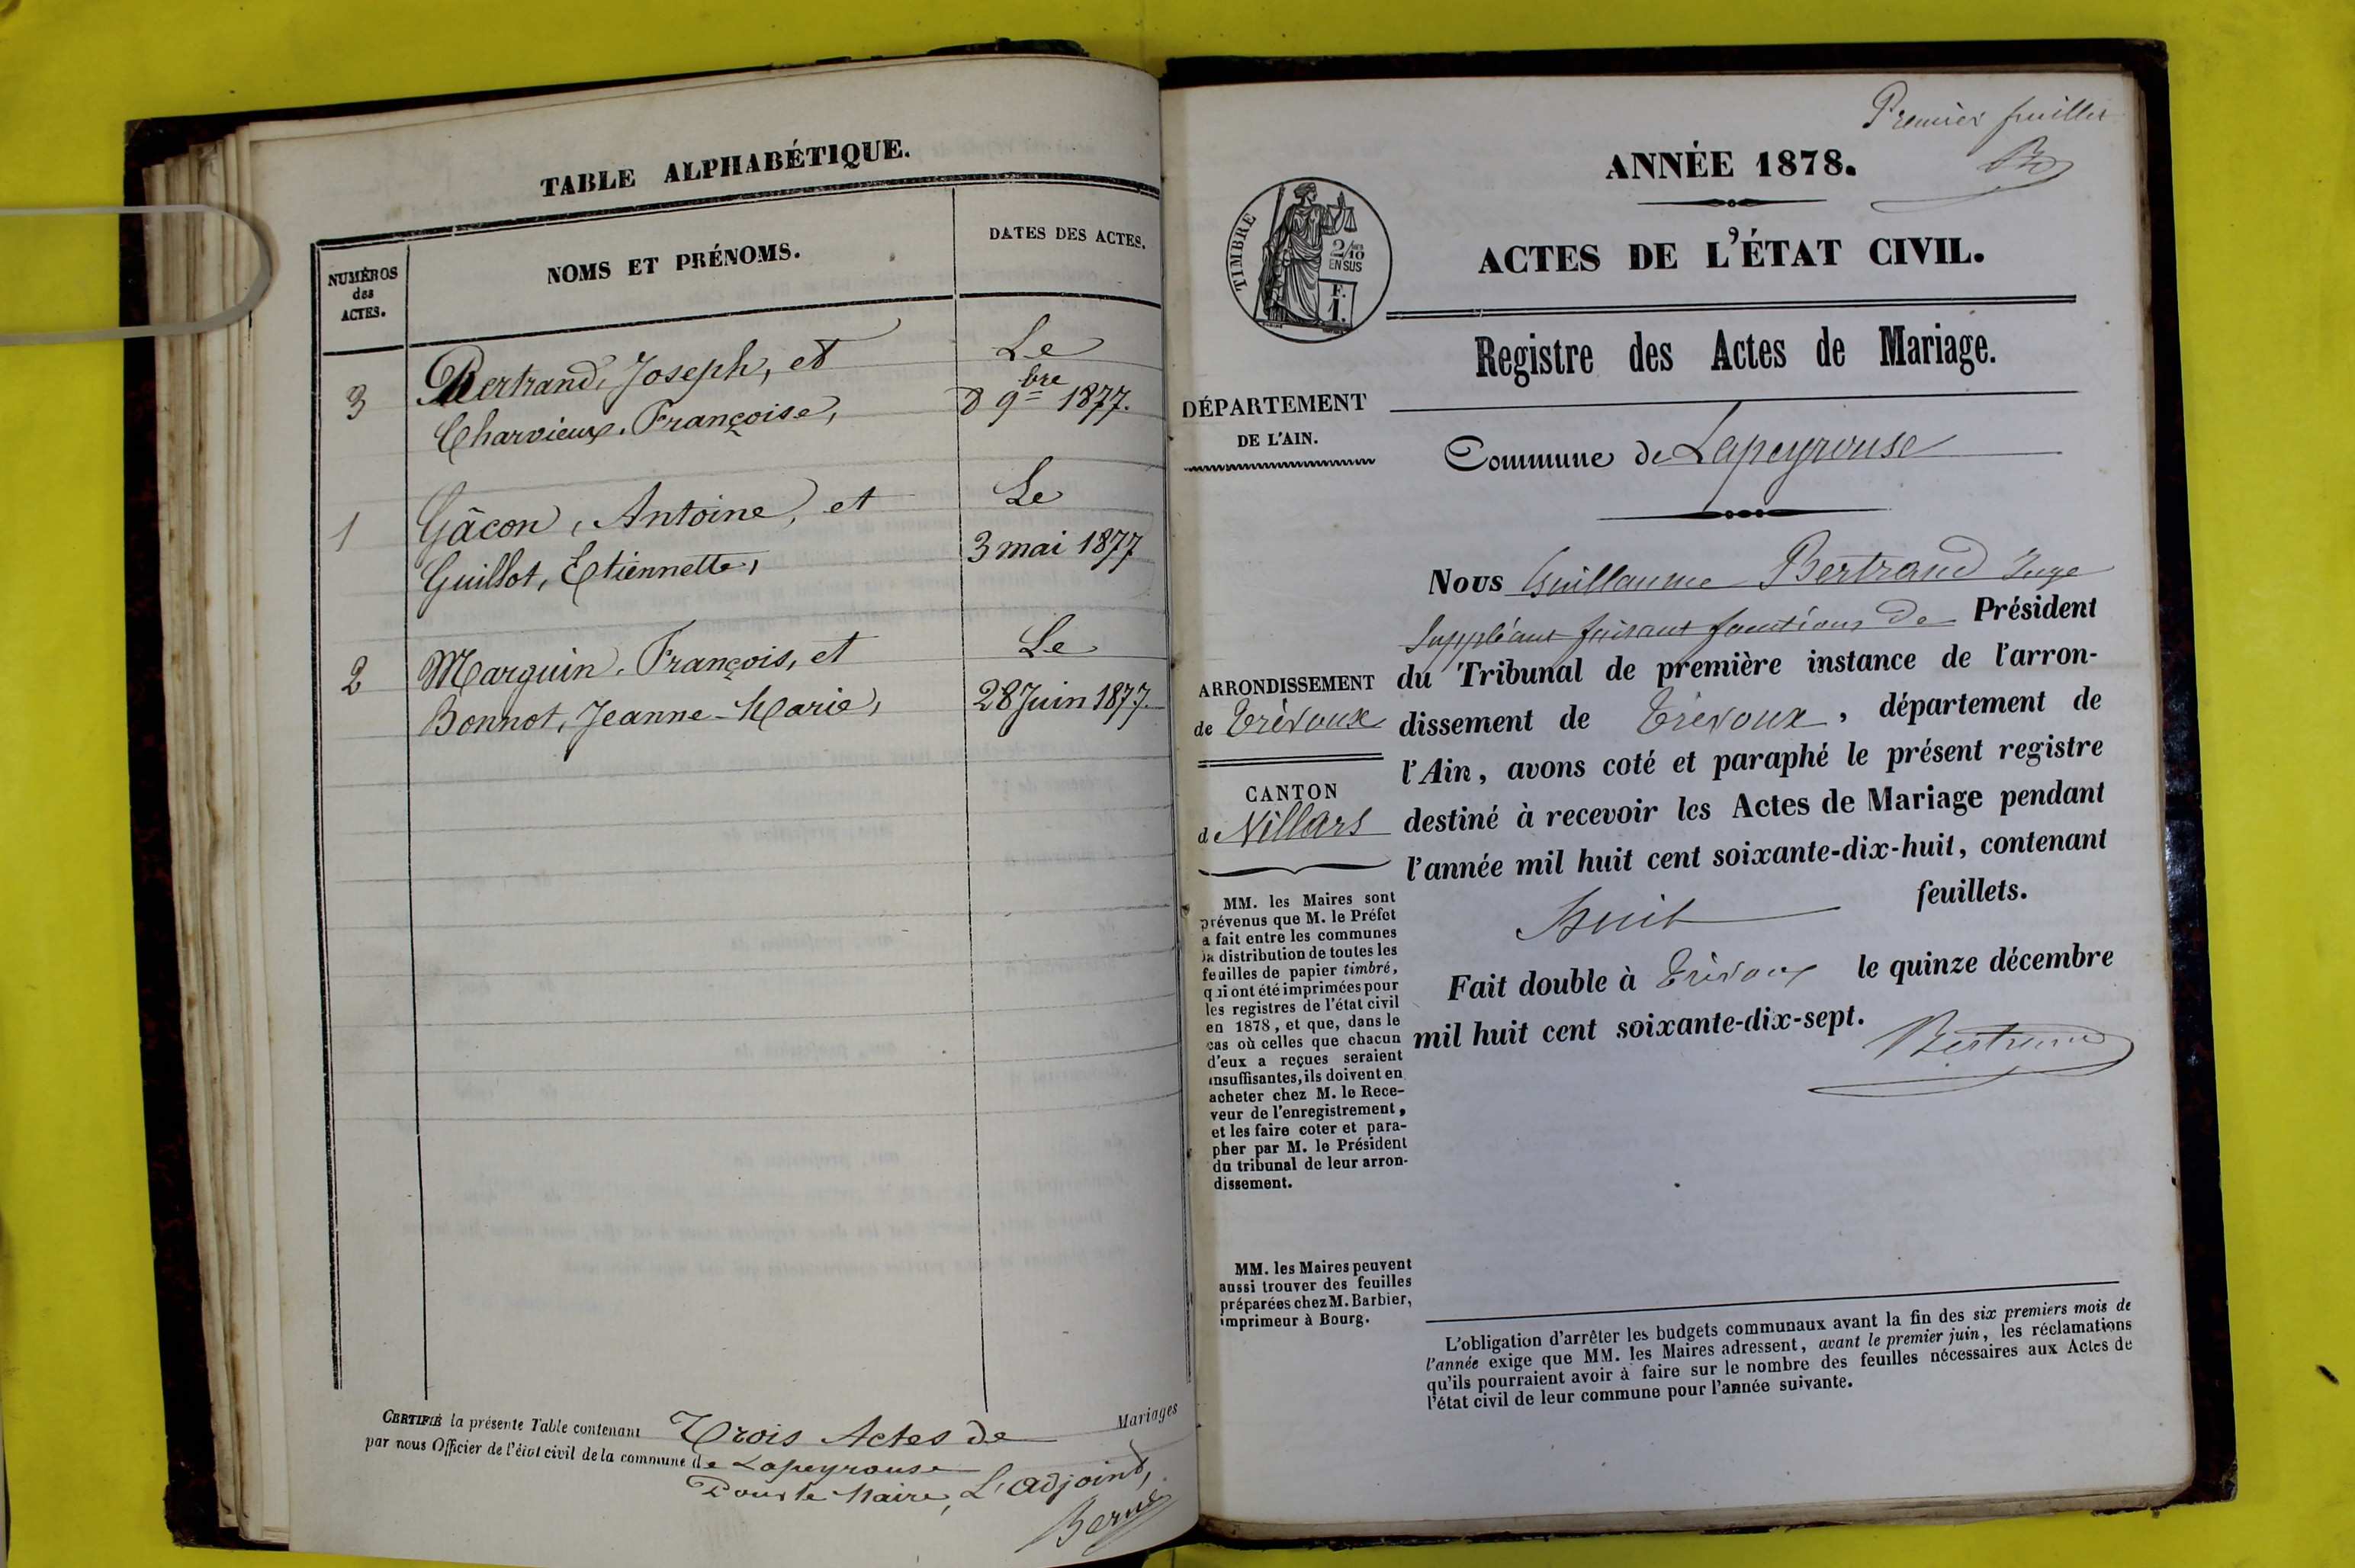 TABLE ALPHABÉTIQUE.
NUMÉROS
des
ACTES.
NOMS ET PRÉNOMS.
DATES DES ACTES.
3
Bertrand, Joseph, et
Charvieux, Françoise,
Le
8 9bre 1877.
1
Gâcon, Antoine, et
Guillot, Etiennette,
Le
3 mai 1877
2
Marguin, François, et
Bonnot, Jeanne-Marie,
Le
28 Juin 1877.
CERTIFIÉ la présente Table contenant Trois Actes de Mariages
par nous Officier de l'état civil de la commune de Lapeyrouse
Pour le Maire, L'adjoint,
Premier feuillet
ANNÉE 1878.
TIMBRE
2/10
EN SUS
F.
1.
ACTES DE L'ÉTAT CIVIL.
Registre des Actes de Mariage.
DÉPARTEMENT
DE L'AIN.
Commune de Lapeyrouse
Nous Guillaume Bertrand Juge
Suppléant faisant fonctions de Président
du Tribunal de première instance de l'arron-
dissement de Trévoux, département de
l'Ain, avons coté et paraphé le présent registre
destiné à recevoir les Actes de Mariage pendant
l'année mil huit cent soixante-dix-huit, contenant
huit feuillets.
Fait double à Trévoux le quinze décembre
mil huit cent soixante-dix-sept.
Bertrand
ARRONDISSEMENT
de Trévoux
CANTON
de Villars
MM. les Maires sont
prévenus que M. le Préfet
a fait entre les communes
la distribution de toutes les
feuilles de papier timbré,
qui ont été imprimées pour
les registres de l'état civil
en 1878, et que, dans le
cas où celles que chacun
d'eux a reçues seraient
insuffisantes, ils doivent en
acheter chez M. le Rece-
veur de l'enregistrement,
et les faire coter et para-
pher par M. le Président
du tribunal de leur arron-
dissement.
MM. les Maires peuvent
aussi trouver des feuilles
préparées chez M. Barbier,
imprimeur à Bourg.
L'obligation d'arrêter les budgets communaux avant la fin des six premiers mois de
l'année exige que MM. les Maires adressent, avant le premier juin, les réclamations
qu'ils pourraient avoir à faire sur le nombre des feuilles nécessaires aux Actes de
l'état civil de leur commune pour l'année suivante.